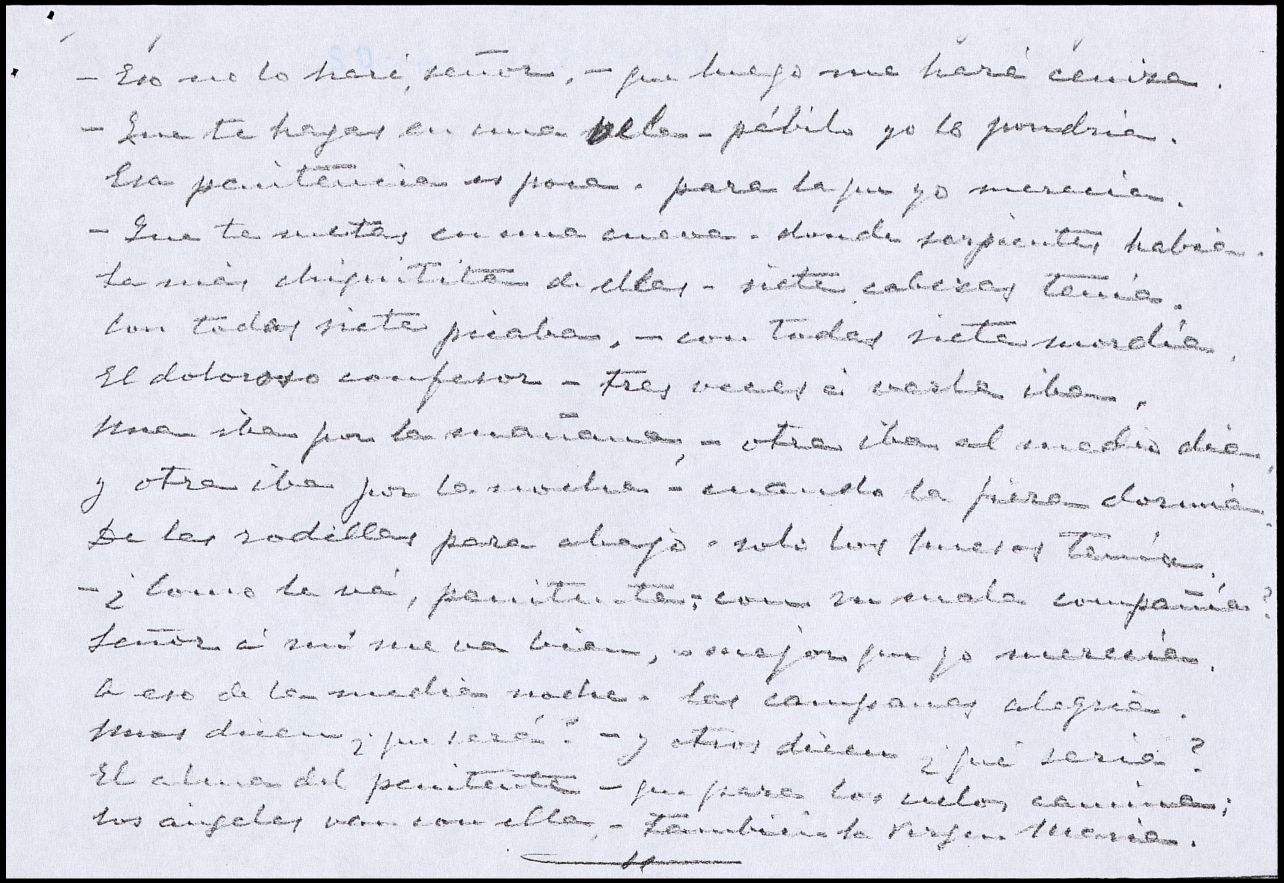 - Eso no lo haré, señor, - que luego me haré ceniza.
- Que te hagas en una vela - pábilo yo le pondría.
Esa penitencia es poca - para la que yo merecía.
- Que te metas en una cueva - donde serpientes había.
La más chiquitita de ellas - siete cabezas tenía.
Con todas siete picaba, - con todas siete mordía.
El doloroso confesor - tres veces á verla iba,
Una iba por la mañana, - otra iba al medio día,
y otra iba por la noche - cuando la fiera dormía.
De las rodillas para abajo - solo los huesos tenía.
- ¿Como le vá, penitente, - con su mala compañía?
Señor á mí me va bien, - mejor que yo merecía.
A eso de la media noche - las campanas alegría.
Unos dicen ¿que será? - y otros dicen ¿qué sería?
El alma del penitente - que para los cielos camina;
Los ángeles van con ella, - también la Virgen María.